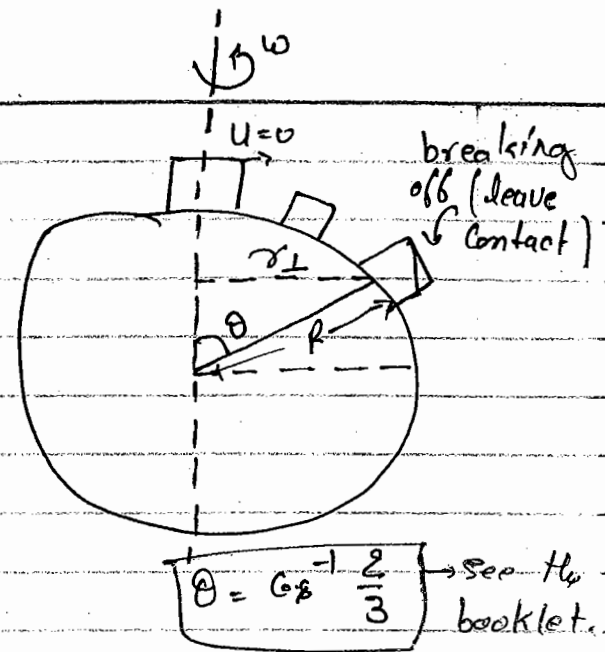 ω
U=0
breaking
off (leave
contact)
r⊥
θ
R
θ = Cos⁻¹ 2/3 → see
booklet.